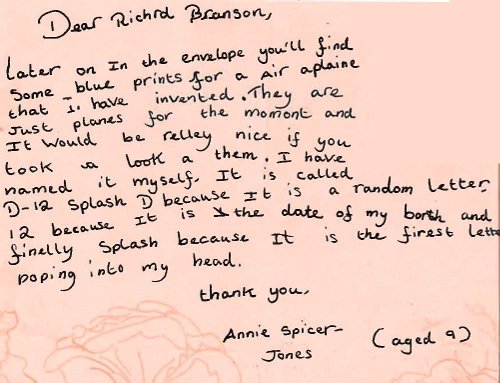 Dear Richrd Branson,
Later on In the envelope you'll find
Some blue prints for a air aplaine
that I have invented. They are
Just planes for the momont and
It would be relley nice if you
took a look a them. I have
named it myself. It is called
D-12 Splash D because It is a random letter,
12 because It is the date of my borth and
finelly Splash because It is the firest lette
poping into my head.
thank you.
Annie Spicer-
Jones
(aged 9)